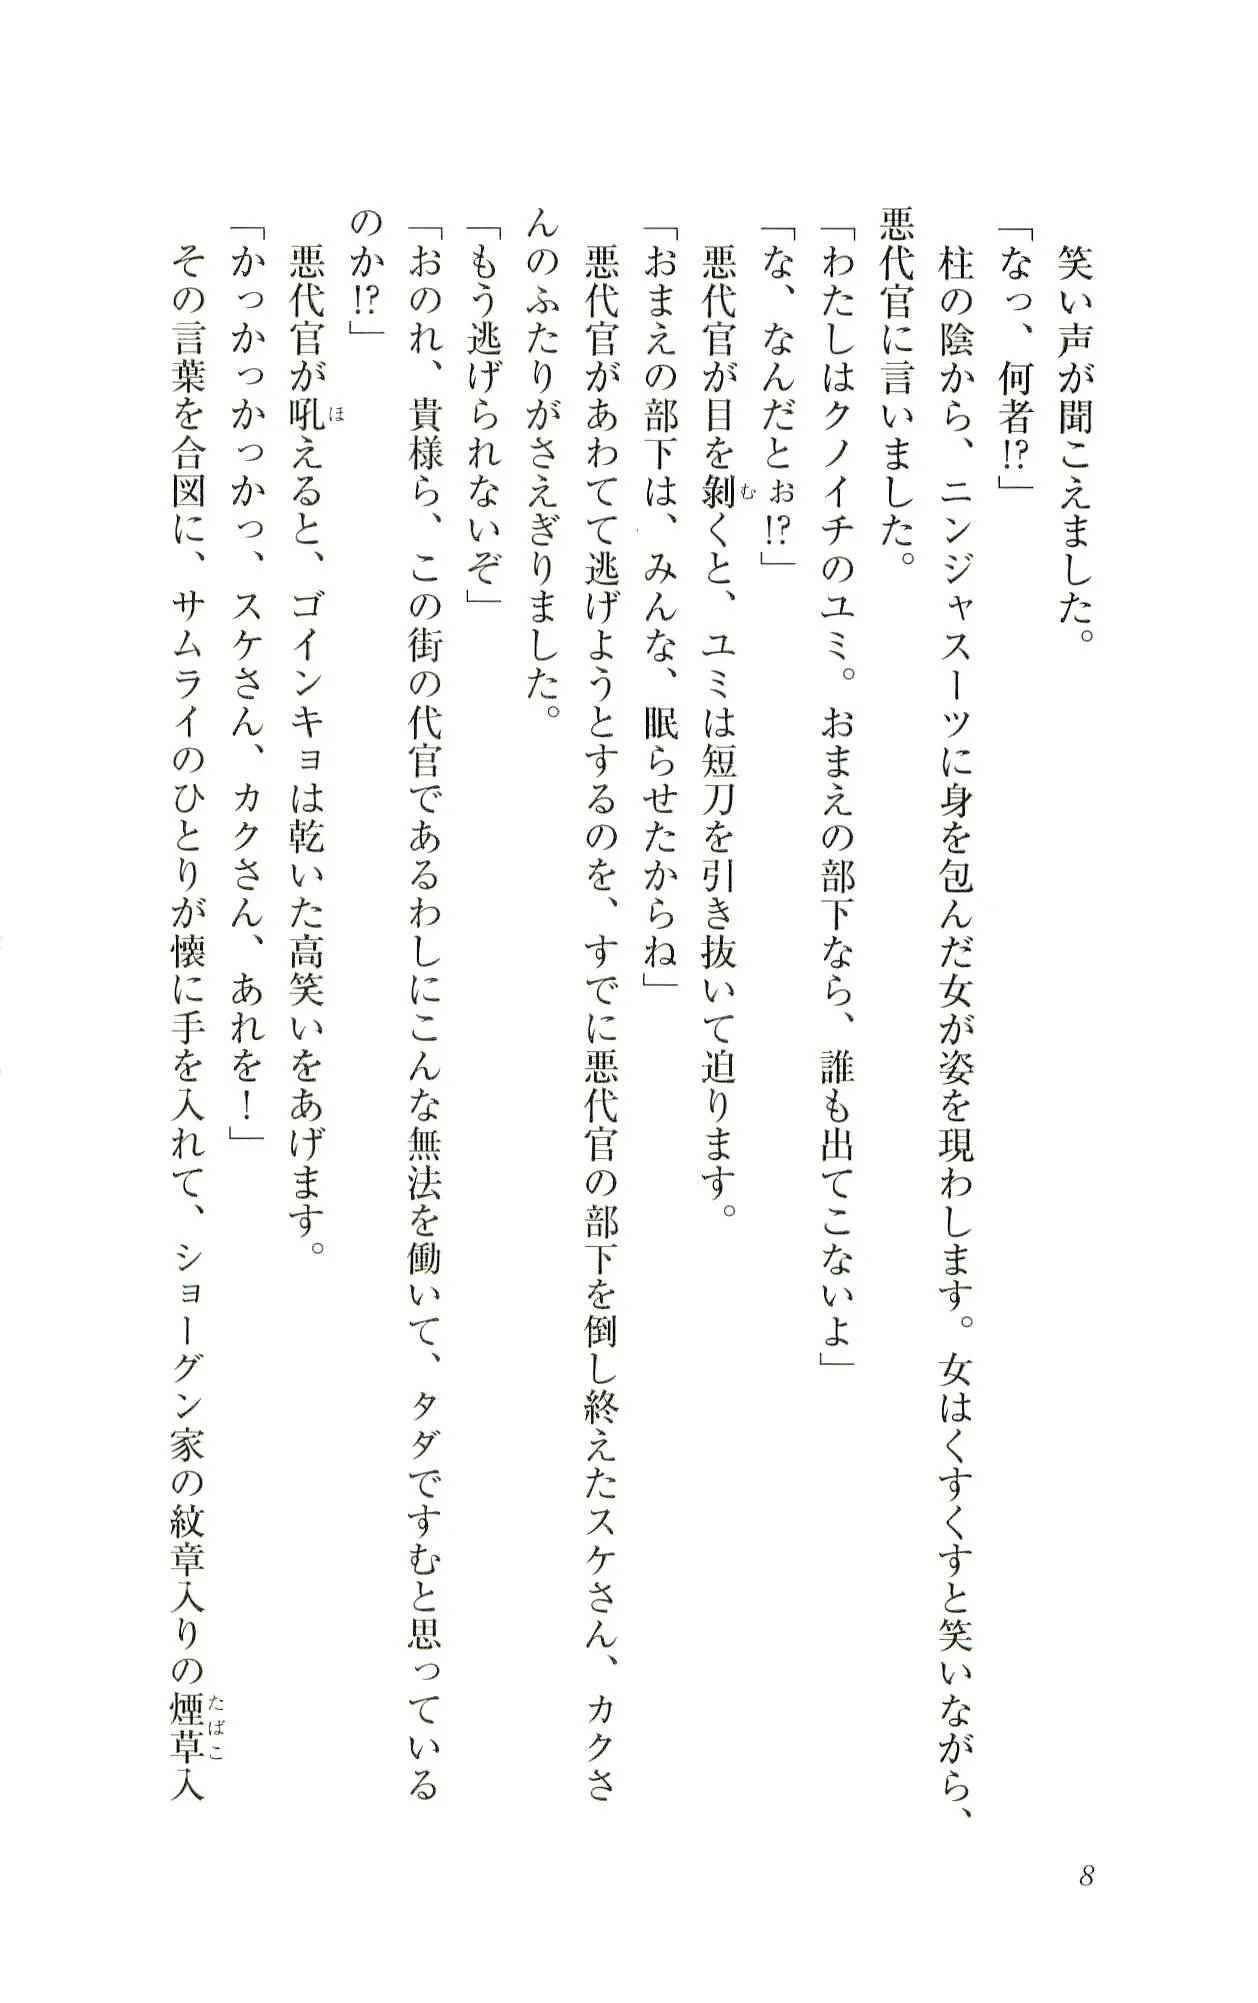 笑い声が聞こえました。
「なっ、何者!?」
柱の陰から、ニンジャスーツに身を包んだ女が姿を現わします。女はくすくすと笑いながら、
悪代官に言いました。
「わたしはクノイチのユミ。おまえの部下なら、誰も出てこないよ」
「な、なんだとぉ!?」
悪代官が目を剝くと、ユミは短刀を引き抜いて迫ります。
む
「おまえの部下は、みんな、眠らせたからね」
悪代官があわてて逃げようとするのを、すでに悪代官の部下を倒し終えたスケさん、カクさ
んのふたりがさえぎりました。
「もう逃げられないぞ」
「おのれ、貴様ら、この街の代官であるわしにこんな無法を働いて、タダですむと思っている
のか!?」
悪代官が吼えると、ゴインキョは乾いた高笑いをあげます。
ほ
「かっかっかっかっ、スケさん、カクさん、あれを!」
その言葉を合図に、サムライのひとりが懐に手を入れて、ショーグン家の紋章入りの煙草入
たばこ
8